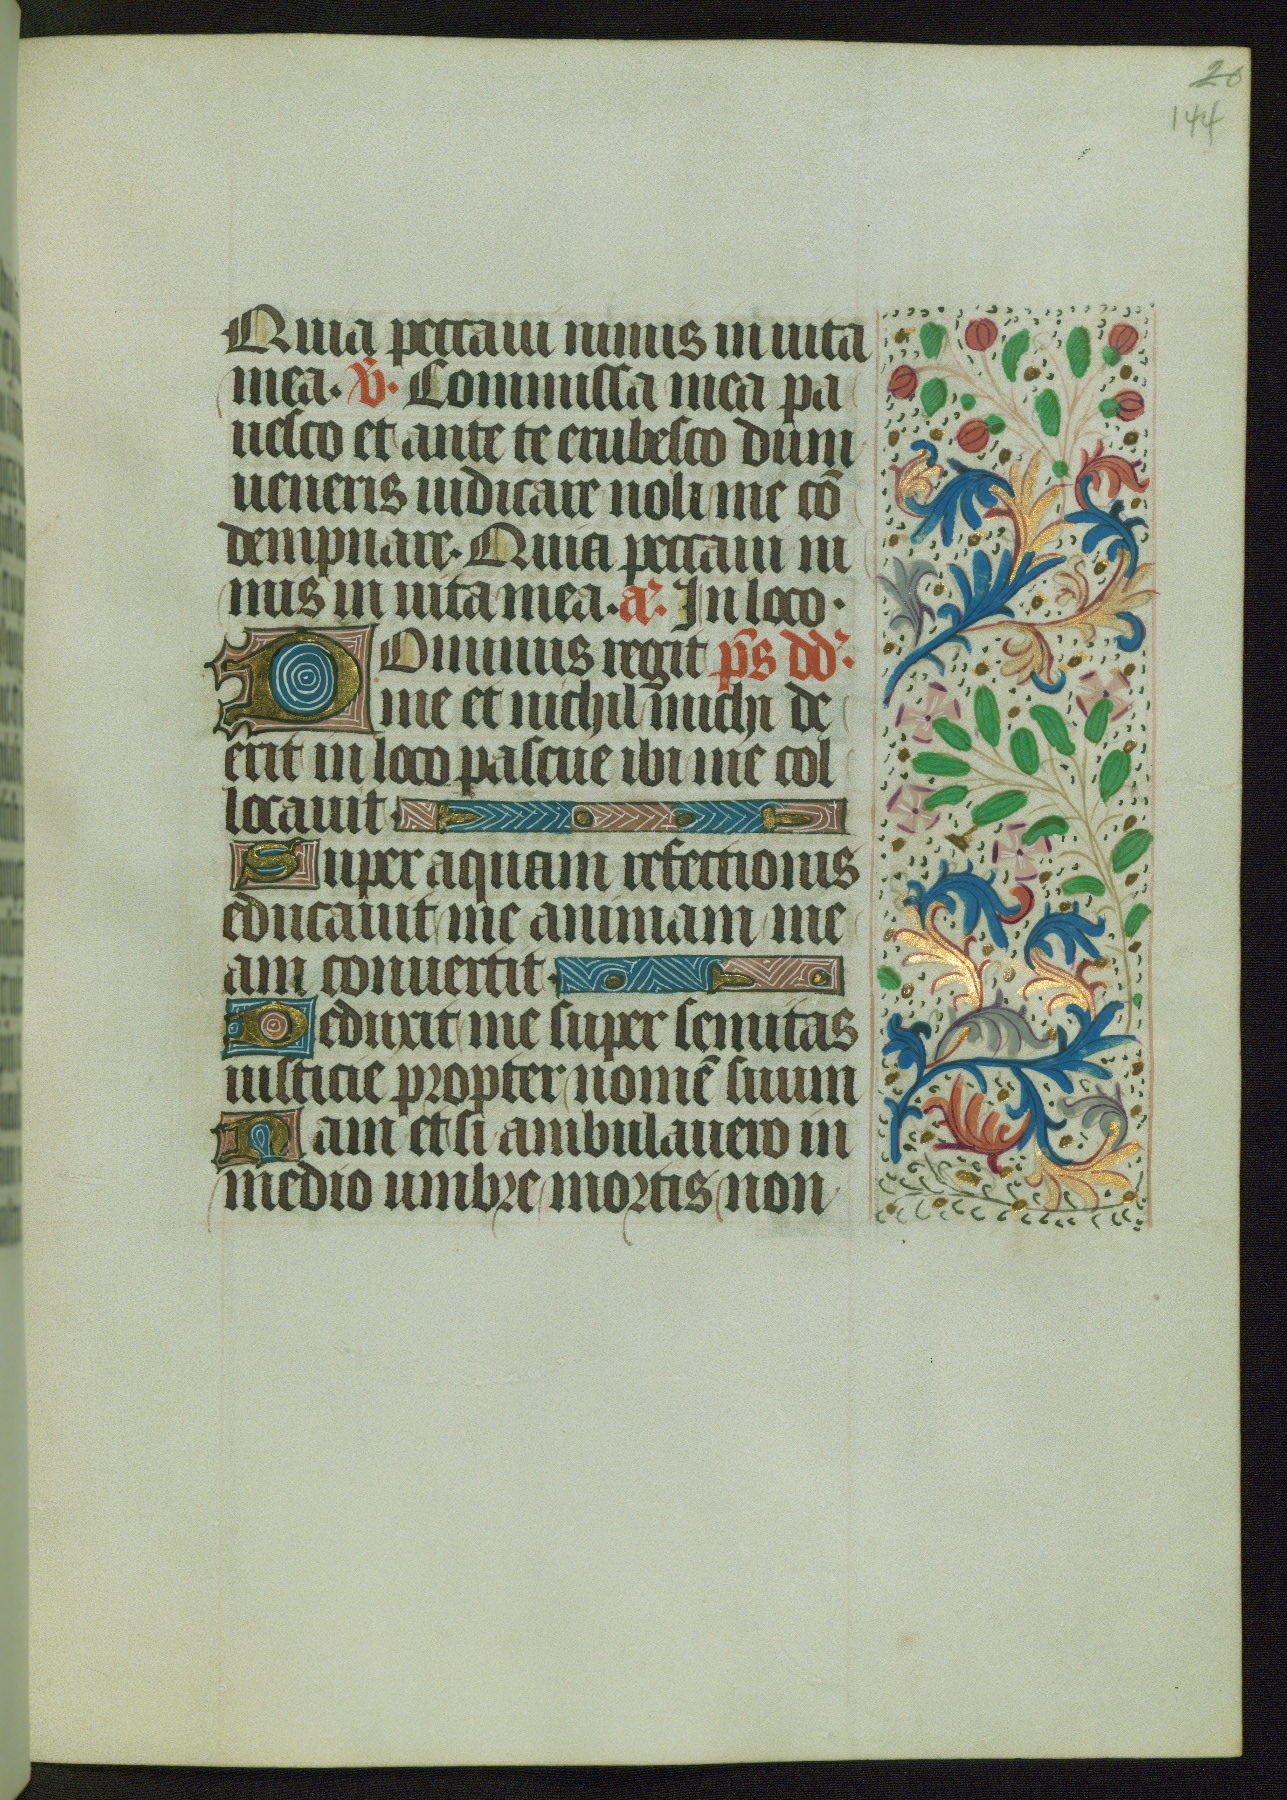 20
144
Quia peccaui nimis in uita
mea. v̄. Commissa mea pa
uesco et ante te erubesco dum
ueneris iudicare noli me cō
dempnare. Quia peccaui ni
mis in uita mea. a᷑. In loco.
Dominus regit p̄s dd᷑.
me et nichil michi de
erit in loco pascue ibi me col
locauit
Super aquam refectionis
educauit me animam me
am conuertit.
Deduxit me super semitas
iusticie propter nomē suum
Nam et si ambulauero in
medio umbre mortis non